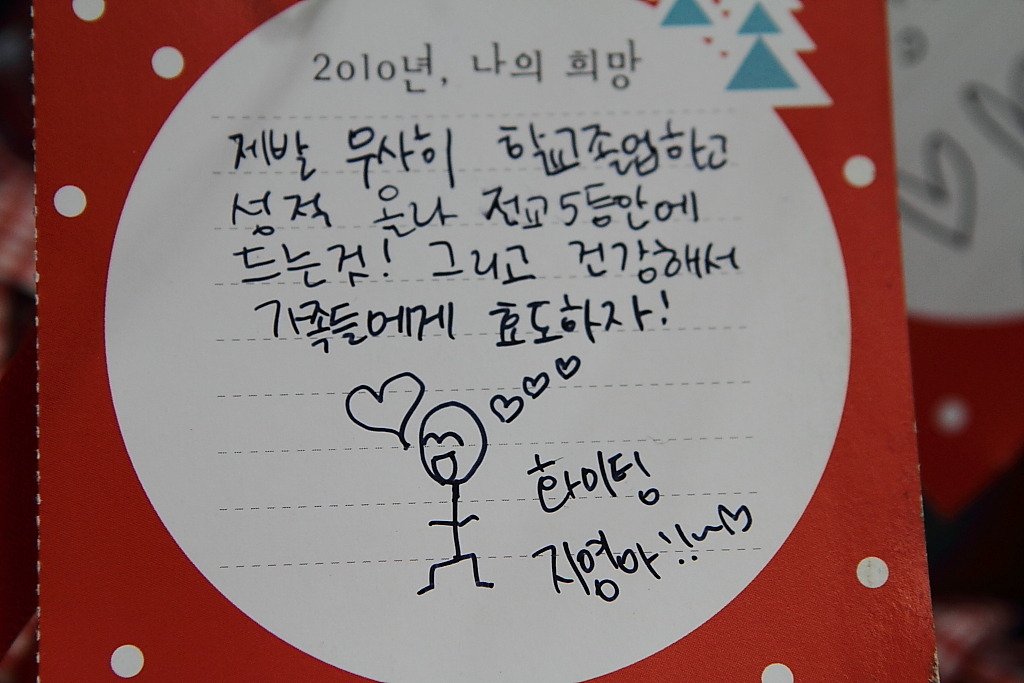 2010년, 나의 희망
제발 무사히 학교졸업하고
성적 올라 전교5등안에
드는것! 그리고 건강해서
가족들에게 효도하자!
화이팅
지영아!!~♡